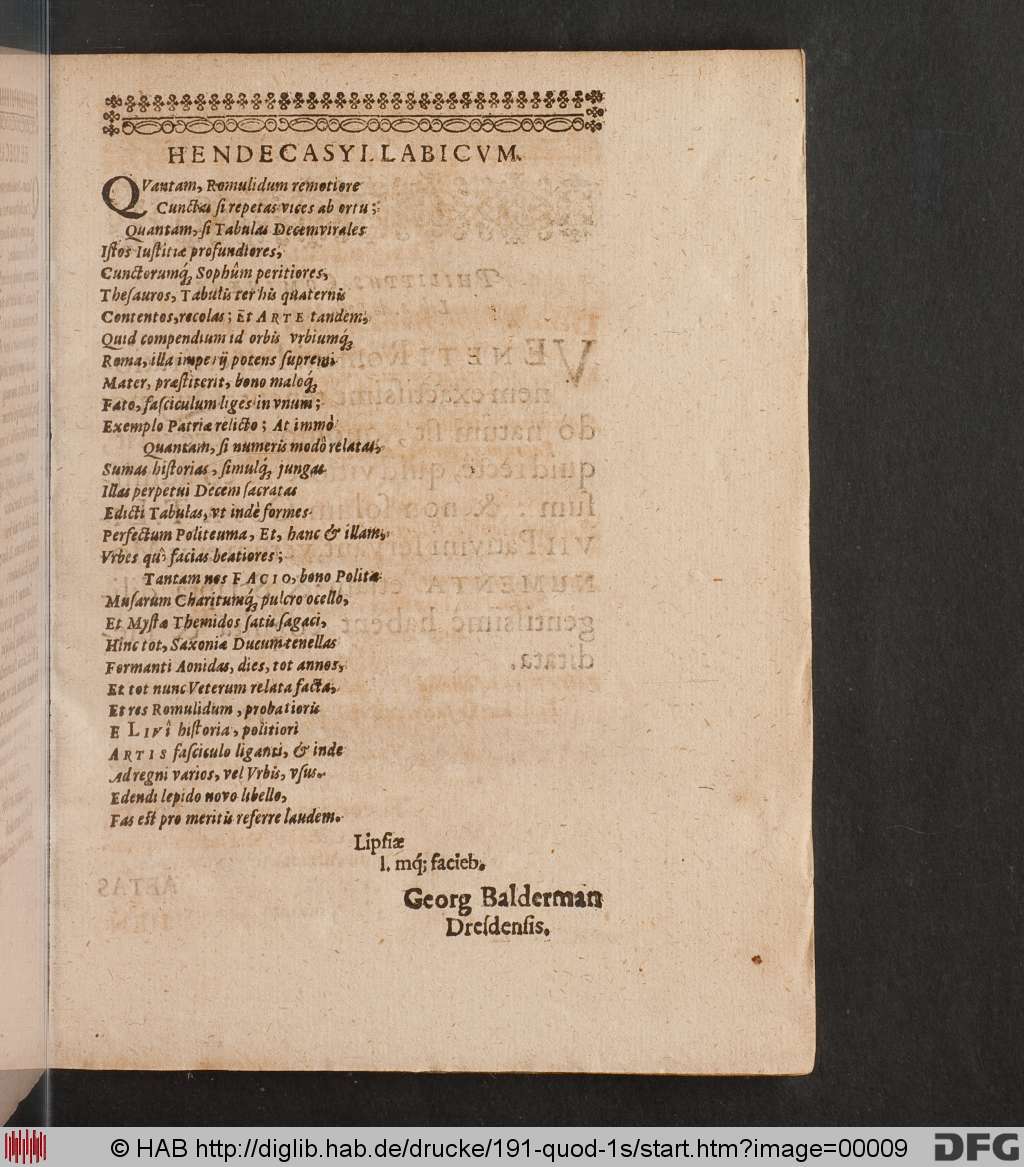 HENDECASYLLABICVM.
QVantam, Romulidum remotiore
Cunctas ſi repetas vices ab ortu;
Quantam, ſi Tabulas Decemvirales
Iſtos Iuſtitiæ profundiores,
Cunctorumq́ꝫ Sophûm peritiores,
Theſauros, Tabulis ter his quaternis
Contentos, recolas; Et ARTE tandem,
Quid compendium id orbis vrbiumq́ꝫ
Roma, illa imperij potens ſupremi
Mater, præſtiterit, bono maloq́ꝫ
Fato, faſciculum liges in vnum;
Exemplo Patriæ relicto; At immò
Quantam, ſi numeris modô relatas,
Sumas hiſtorias, ſimulq́ꝫ jungas
Illas perpetui Decem ſacratas
Edicti Tabulas, vt indè formes
Perfectum Politeuma, Et, hanc & illam,
Vrbes quò facias beatiores;
Tantam nos FACIO, bono Politæ
Muſarum Charitumq́ꝫ pulcro ocello,
Et Myſtæ Themidos ſatis ſagaci,
Hinc tot, Saxoniæ Ducum tenellas
Formanti Aonidas, dies, tot annos,
Et tot nunc Veterum relata facta,
Et res Romulidum, probatioris
E LIVî hiſtoria, politiori
ARTIS faſciculo liganti, & inde
Ad regni varios, vel Vrbis, vſus
Edendi lepido novo libello,
Fas eſt pro meritis referre laudem.
Lipſiæ
l. mq́; facieb.
Georg Balderman
Dreſdenſis.
© HAB http://diglib.hab.de/drucke/191-quod-1s/start.htm?image=00009
DFG